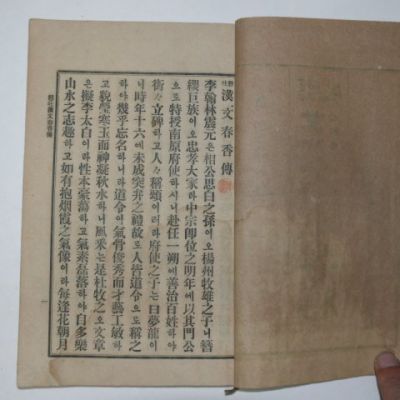 懸吐漢文春香傳
李翰林震元은相公思白之孫이오楊州牧雄之子니簪
纓巨族이오忠孝大家라中宗卽位之明年에以其門公
으로特授南原府使하시니赴任一朔에善治百姓하야
衛々立碑하고人々稱頌이러라府使之子는曰夢龍이
니時年十六에未成突弁之禮故로人皆道令으로稱之
하야幾乎忘名하니라道令이氣骨俊秀而才藝工敏하
고貌瑩寒玉而神凝秋水하니風采는是杜牧之오文章
은擬李太白이라性本豪蕩하고氣素磊落하야自多樂
山水之志趣하고如有抱烟霞之氣像이라每逢花朝月
懸吐漢文春香傳
一